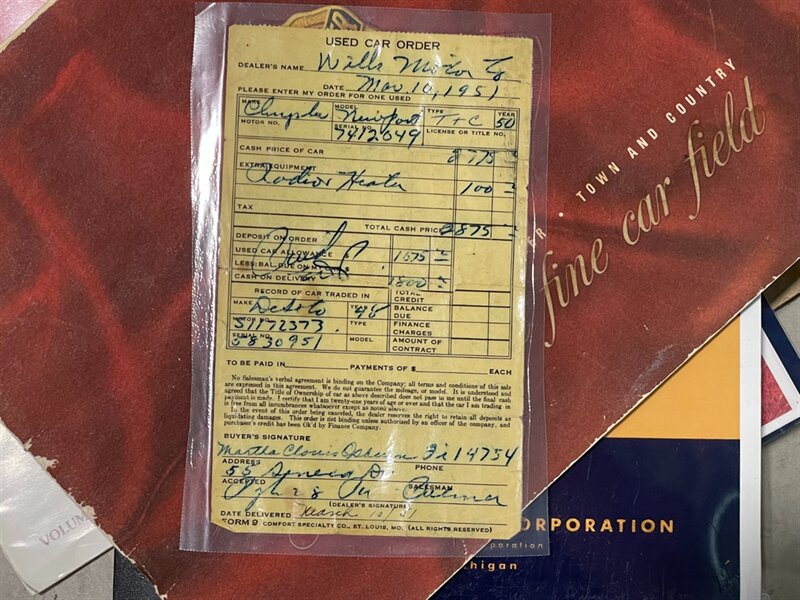 USED CAR ORDER
DEALER'S NAME Wills Motor Co
DATE Mar. 10, 1951
PLEASE ENTER MY ORDER FOR ONE USED
MAKE Chrysler MODEL Newport TYPE T+C YEAR 50
MOTOR NO. SERIAL NO. 7412049 LICENSE OR TITLE NO.
CASH PRICE OF CAR 2775
EXTRA EQUIPMENT
Radio & Heater 100
TAX
TOTAL CASH PRICE 2875
DEPOSIT ON ORDER
USED CAR ALLOWANCE 1075
LESS: BAL. DUE ON
CASH ON DELIVERY 1800
RECORD OF CAR TRADED IN TOTAL CREDIT
MAKE DeSoto YEAR 48 BALANCE DUE
MOTOR NO. S1172373 TYPE FINANCE CHARGES
SERIAL NO. 5830951 MODEL AMOUNT OF CONTRACT
TO BE PAID IN PAYMENTS OF $ EACH
No Salesman's verbal agreement is binding on the Company; all terms and conditions of this sale
are expressed in this agreement. We do not guarantee the mileage, or model. It is understood and
agreed that the Title of Ownership of car as above described does not pass to me until the final cash
payment is made. I certify that I am twenty-one years of age or over and that the car I am trading in
is free from all incumbrances whatsoever except as noted above.
In the event of this order being canceled, the dealer reserves the right to retain all deposits as
liquidating damages. This order is not binding unless authorized by an officer of the company, and
purchaser's credit has been Ok'd by Finance Company.
BUYER'S SIGNATURE
Martha Osburn Fi 14754
ADDRESS 55 Seneca Dr. PHONE
ACCEPTED Pgh 28 Pa SALESMAN Palmer
(DEALER'S SIGNATURE)
DATE DELIVERED March 10/51
FORM 9 COMFORT SPECIALTY CO., ST. LOUIS, MO. (ALL RIGHTS RESERVED)
ER • TOWN AND COUNTRY
fine car field
VOLUM
CORPORATION
corporation
higan